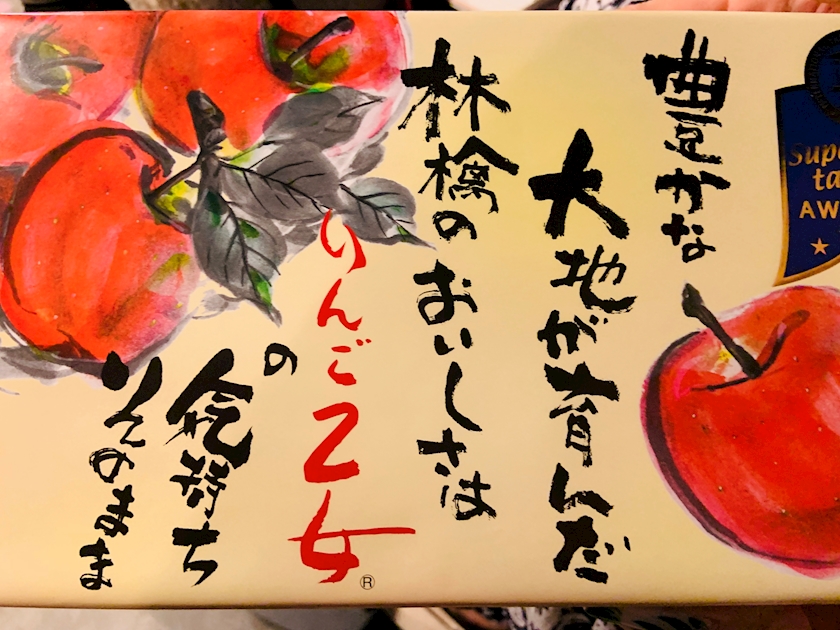 豊かな
大地が育んだ
林檎のおいしさは
りんご乙女®
の
気持ち
そのまま
AW